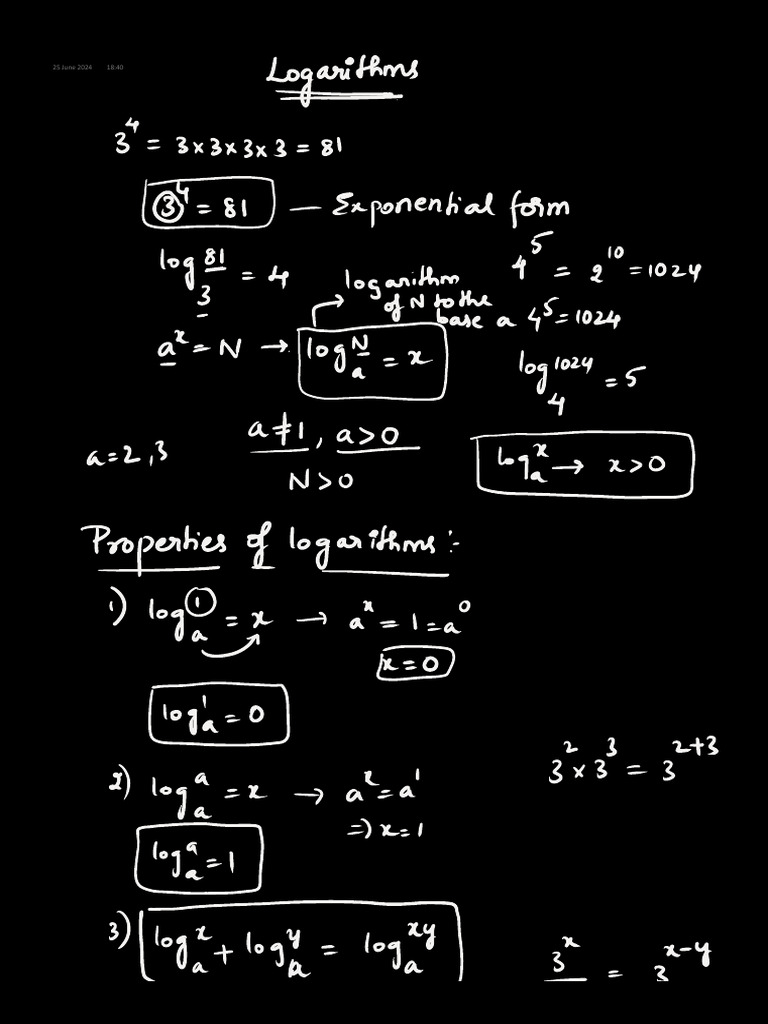 25 June 2024 18:40
Logarithms
3^4 = 3×3×3×3 = 81
3^4 = 81 — Exponential form
log_3^81 = 4
4^5 = 2^10 = 1024
logarithm of N to the base a
4^5 = 1024
a^x = N → log_a^N = x
log_4^1024 = 5
a = 2, 3
a ≠ 1, a > 0
N > 0
log_a^x → x > 0
Properties of logarithms :-
1) log_a^1 = x → a^x = 1 = a^0
x = 0
log_a^1 = 0
3^2 × 3^3 = 3^2+3
2) log_a^a = x → a^x = a^1
⇒ x = 1
log_a^a = 1
3) log_a^x + log_a^y = log_a^xy
3^x = 3^x-y